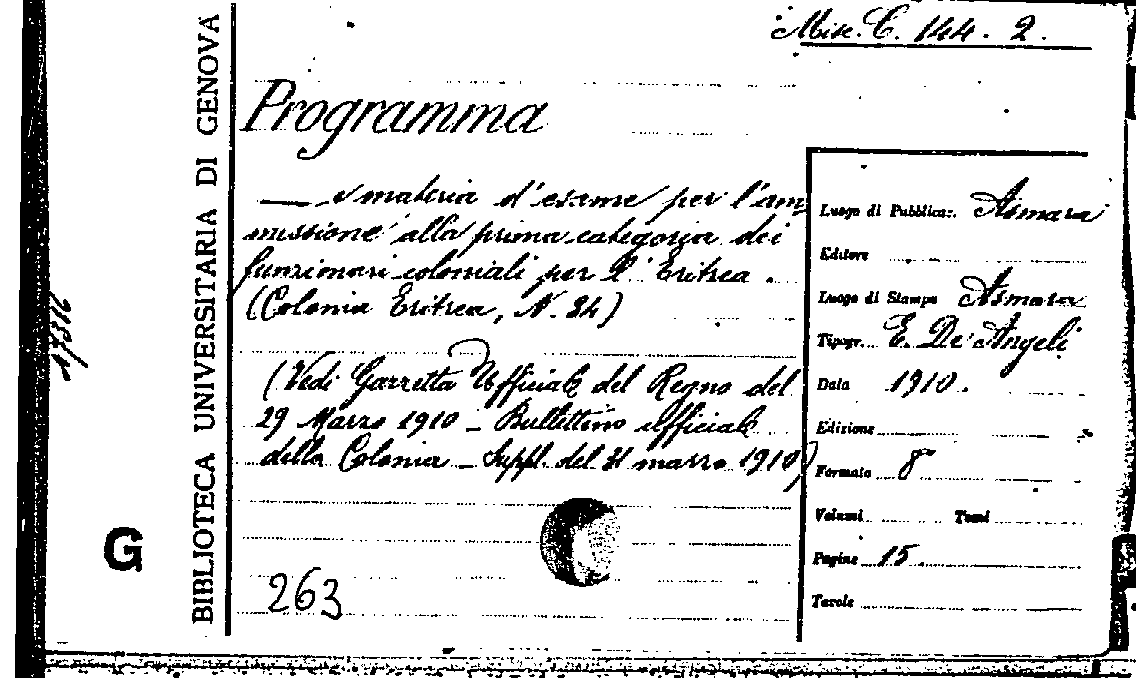 Misc. C. 144. 2.
BIBLIOTECA UNIVERSITARIA DI GENOVA
Programma
— e materia d'esame per l'am-
missione alla prima categoria dei
funzionari coloniali per l'Eritrea.
(Colonia Eritrea, N. 34)
(Vedi Gazzetta Ufficiale del Regno del
29 Marzo 1910 – Bullettino ufficiale
della Colonia – Suppl. del 31 marzo 1910)
263
G
17316
Luogo di Pubblicaz. Asmara
Editore
Luogo di Stampa Asmara
Tipogr. E. De Angeli
Data 1910.
Edizione
Formato 8°
Volumi Tomi
Pagine 15
Tavole